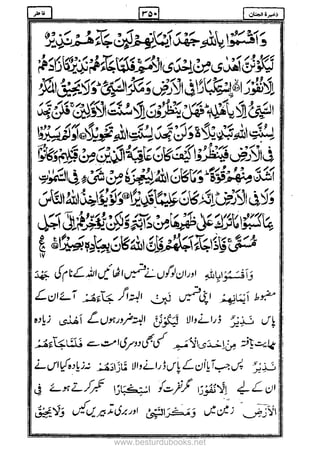 ذخیرۃ الجنان ۳۵۰ فاطر
وَاَقْسَمُوْا بِاللّٰهِ جَهْدَ اَيْمَانِهِمْ لَئِنْ جَآءَهُمْ نَذِيْرٌ
لَّيَكُوْنُنَّ اَهْدٰى مِنْ اِحْدَى الْاُمَمِ فَلَمَّا جَآءَهُمْ نَذِيْرٌ مَّا زَادَهُمْ
اِلَّا نُفُوْرًا ۙ اسْتِكْبَارًا فِى الْاَرْضِ وَمَكْرَ السَّيِّئِ ؕ وَلَا يَحِيْقُ الْمَكْرُ
السَّيِّئُ اِلَّا بِاَهْلِهٖ ؕ فَهَلْ يَنْظُرُوْنَ اِلَّا سُنَّتَ الْاَوَّلِيْنَ ۚ فَلَنْ تَجِدَ
لِسُنَّتِ اللّٰهِ تَبْدِيْلًا ۚ وَلَنْ تَجِدَ لِسُنَّتِ اللّٰهِ تَحْوِيْلًا اَوَلَمْ يَسِيْرُوْا
فِى الْاَرْضِ فَيَنْظُرُوْا كَيْفَ كَانَ عَاقِبَةُ الَّذِيْنَ مِنْ قَبْلِهِمْ وَكَانُوْۤا
اَشَدَّ مِنْهُمْ قُوَّةً ؕ وَمَا كَانَ اللّٰهُ لِيُعْجِزَهٗ مِنْ شَىْءٍ فِى السَّمٰوٰتِ
وَلَا فِى الْاَرْضِ ؕ اِنَّهٗ كَانَ عَلِيْمًا قَدِيْرًا وَلَوْ يُؤَاخِذُ اللّٰهُ النَّاسَ
بِمَا كَسَبُوْا مَا تَرَكَ عَلٰى ظَهْرِهَا مِنْ دَآبَّةٍ وَّلٰكِنْ يُّؤَخِّرُهُمْ اِلٰٓى اَجَلٍ
مُّسَمًّى ۚ فَاِذَا جَآءَ اَجَلُهُمْ فَاِنَّ اللّٰهَ كَانَ بِعِبَادِهٖ بَصِيْرًا ع ۱۷
وَاَقْسَمُوْا بِاللّٰهِ اور ان لوگوں نے قسمیں اٹھائیں اللہ کے نام کی جَهْدَ
اَيْمَانِهِمْ مضبوط اپنی قسمیں لَئِنْ البتہ اگر جَآءَهُمْ آئے ان کے
پاس نَذِيْرٌ ڈرانے والا لَّيَكُوْنُنَّ البتہ ضرور ہوں گے اَهْدٰى زیادہ
ہدایت یافتہ مِنْ اِحْدَى الْاُمَمِ کسی بھی دوسری امت سے فَلَمَّا جَآءَهُمْ
نَذِيْرٌ پس جب آیا ان کے پاس ڈرانے والا مَّا زَادَهُمْ نہ زیادہ کیا اس نے
ان کے لیے اِلَّا نُفُوْرًا مگر نفرت کو اسْتِكْبَارًا تکبر کرتے ہوئے فِى
الْاَرْضِ زمین میں وَمَكْرَ السَّيِّئِ اور بری تدبیریں کیں وَلَا يَحِيْقُ
www.besturdubooks.net